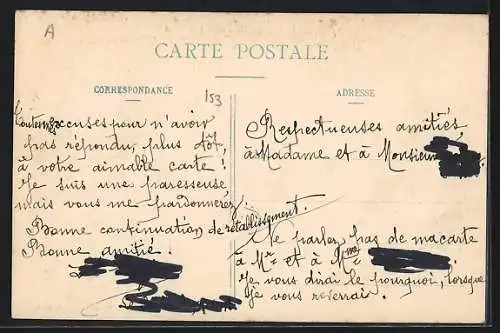 A
CARTE POSTALE
CORRESPONDANCE
153
ADRESSE
Toutes excuses pour n'avoir
pas répondu, plus tôt,
à votre aimable carte !
Je suis une paresseuse
mais vous me pardonnerez.
Bonne continuation de rétablissement.
Bonne amitié.
Respectueuses amitiés
à Madame et à Monsieur
Ne parlez pas de ma carte
à Mr et à Mme
Je vous dirai le pourquoi, lorsque
Je vous reverrai.